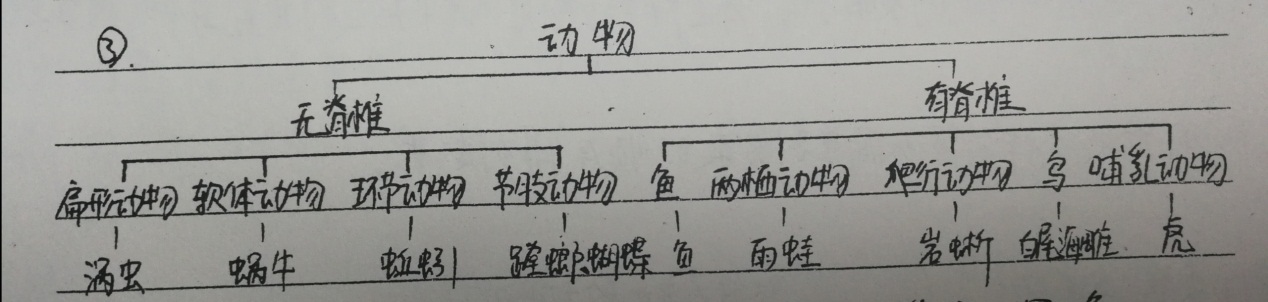 ③.
动物
无脊椎 有脊椎
扁形动物 软体动物 环节动物 节肢动物 鱼 两栖动物 爬行动物 鸟 哺乳动物
涡虫 蜗牛 蚯蚓 螳螂、蝴蝶 鱼 雨蛙 岩蜥 白尾海雕 虎